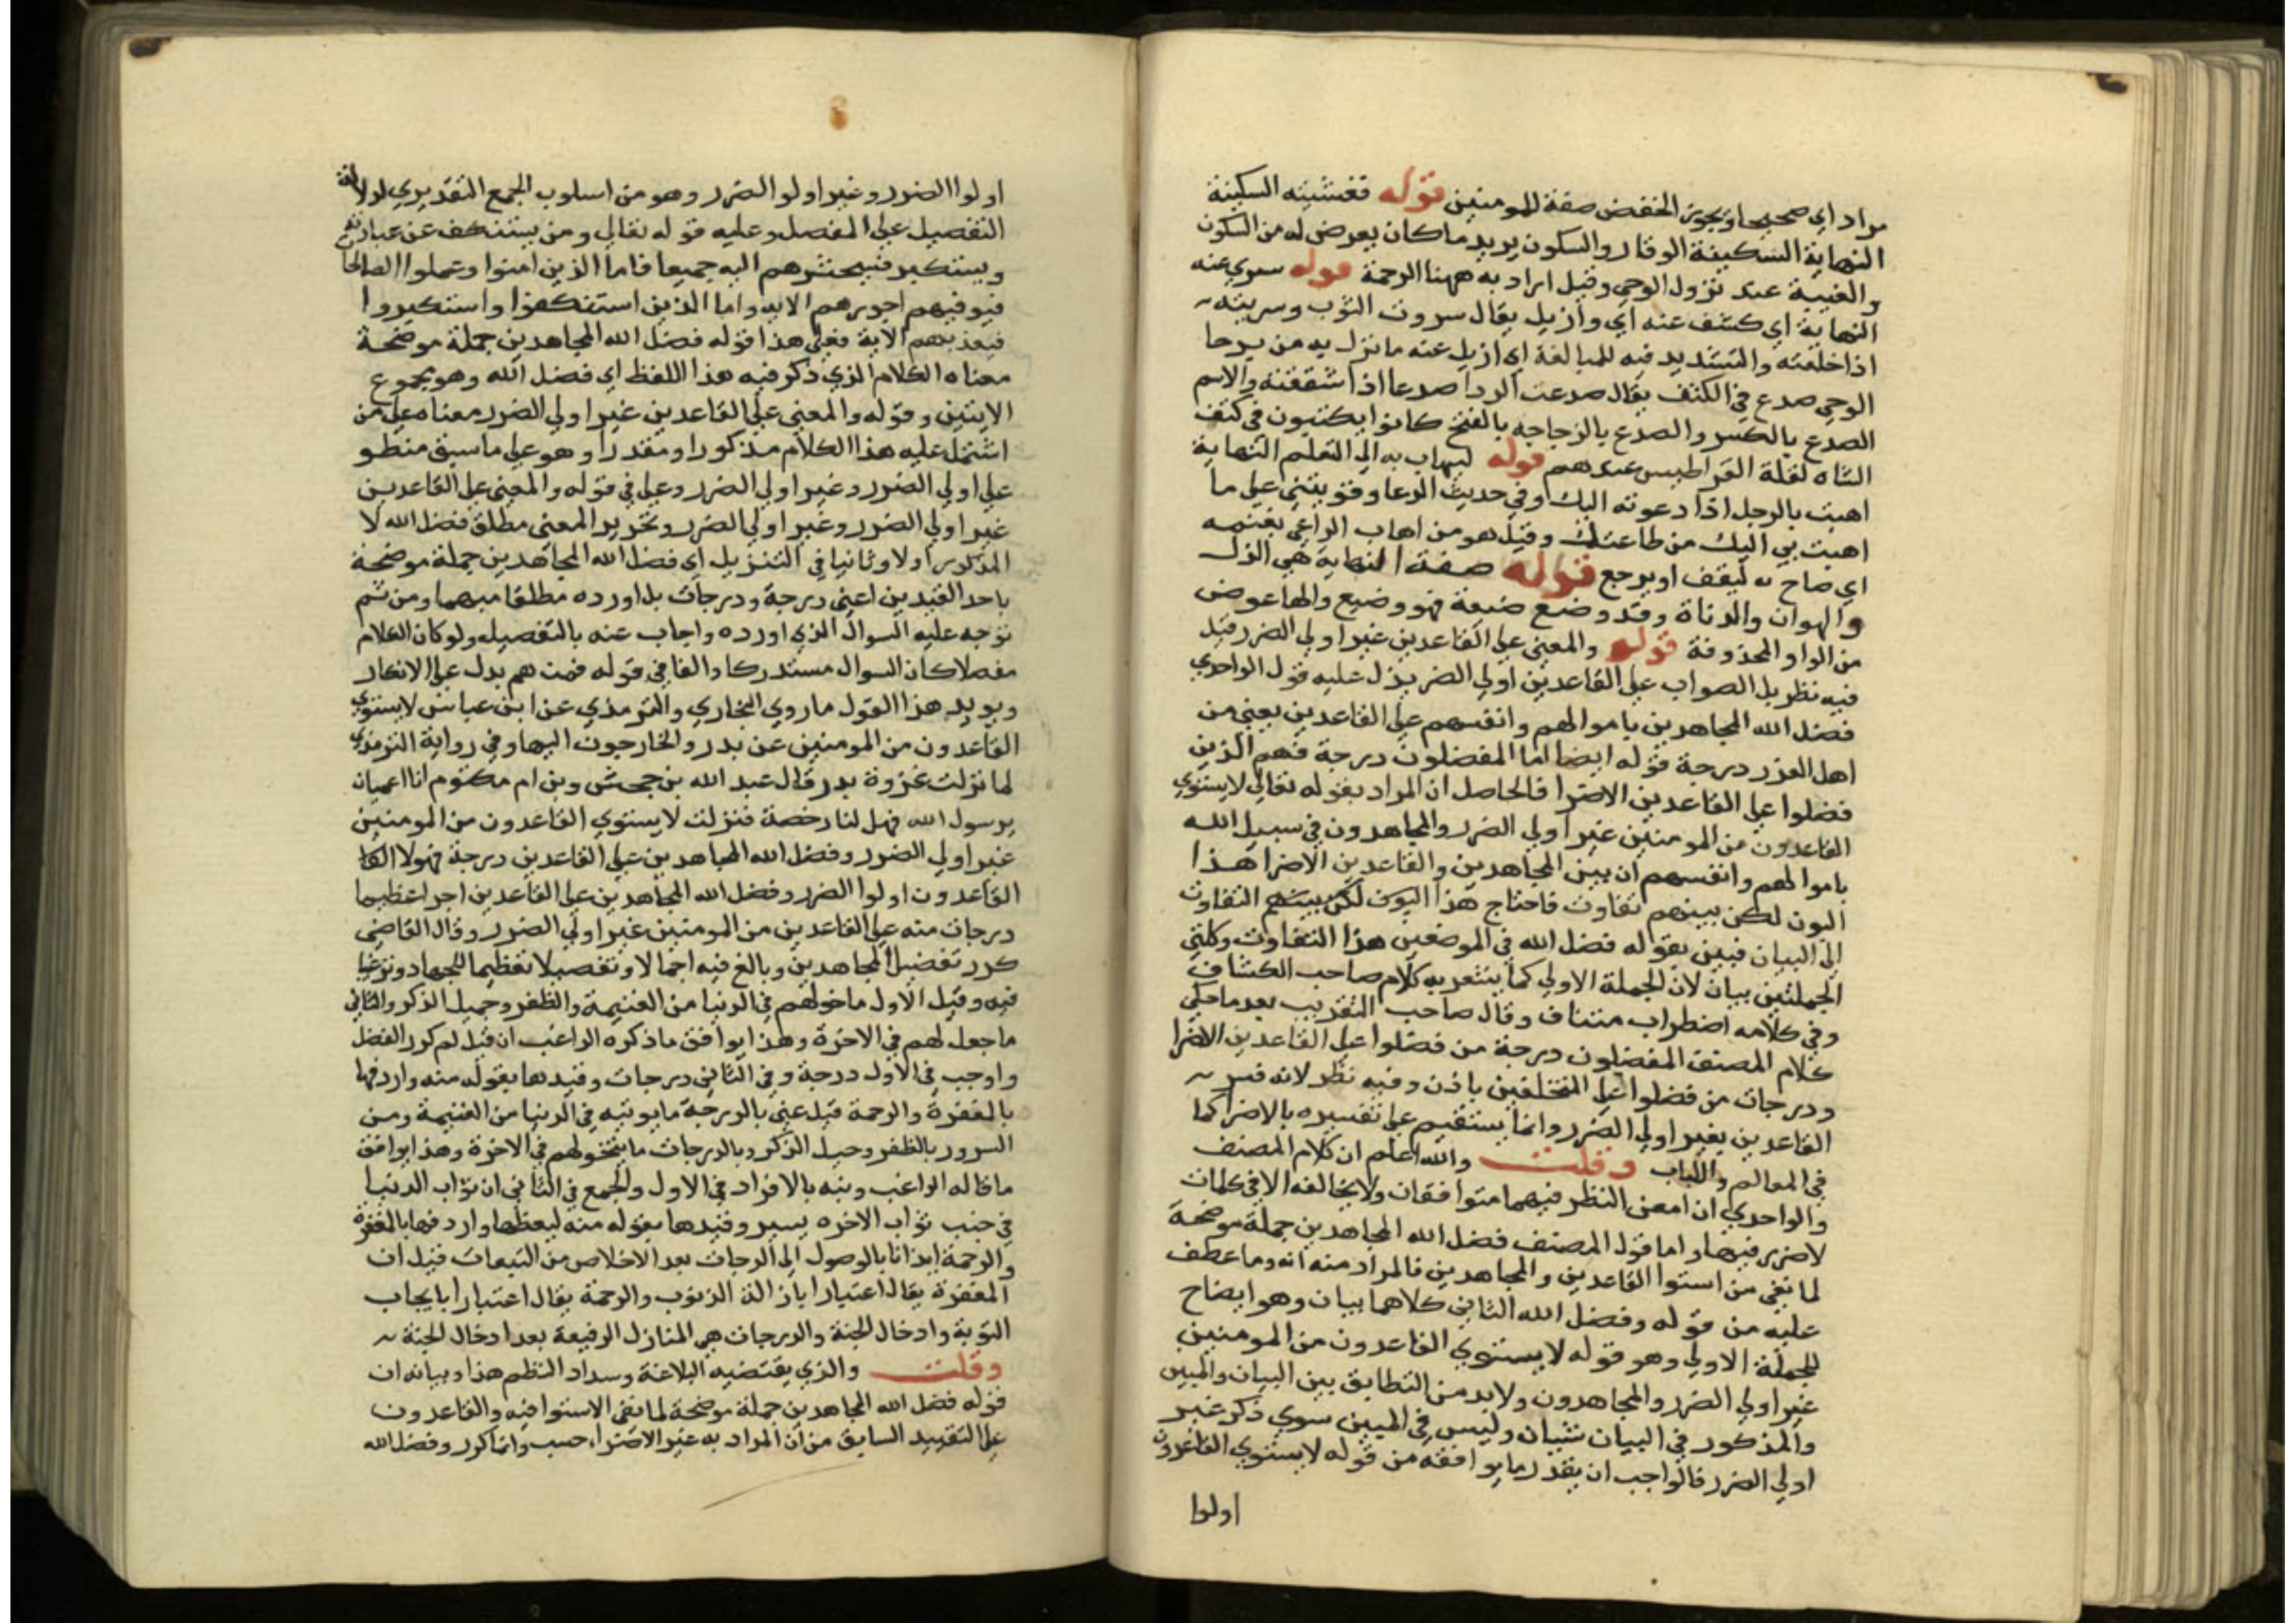 مراد اي صحيحا ويجوز الخفض صفة للمومنين قوله فغشيته السكينة
النهاية السكينة الوقار والسكون يريد ما كان يعرض له من السكون
والغيبة عند نزول الوحي وقيل اراد به ههنا الرحمة قوله سري عنه
النهاية اي كشف عنه اي وازيل يقال سروت الثوب وسريته
اذا خلعته والتشديد فيه للمبالغة اي ازيل عنه ما نزل به من برحا
الوحي صدع في الكتف يقال صدعت الردا صدعا اذا شققته والاسم
الصدع بالكسر والصدع بالزجاجه بالفتح كانوا يكتبون في كتف
الشاه لقلة القراطيس عندهم قوله ليهاب به الى التعلم النهاية
اهبت بالرجل اذا دعوته اليك وفي حديث الدعا وقويتني على ما
اهبت بي اليك من طاعتك وقيل هو من اهاب الراعي بغنمه
اي صاح به ليقف او يرجع قوله صفة النهاية هي الذل
والهوان والدناة وقد وضع ضيعة فهو وضيع والها عوض
من الواو المحذوفة قوله والمعنى على القاعدين غير اولي الضرر قيل
فيه نظر بل الصواب على القاعدين اولي الضر يدل عليه قول الواحدي
فضل الله المجاهدين باموالهم وانفسهم على القاعدين يعني من
اهل العذر درجة قوله ايضا اما المفضلون درجة فهم الذين
فضلوا على القاعدين الاضرا فالحاصل ان المراد بقوله تعالي لا يستوي
القاعدون من المومنين غير اولي الضرر والمجاهدون في سبيل الله
باموالهم وانفسهم ان بين المجاهدين والقاعدين الاضرا هذا
البون لكن بينهم تفاوت فاحتاج هذا البون لكن بينهم التفاوت
الى البيان فبين بقوله فضل الله في الموضعين هذا التفاوت وكلتي
الجملتين بيان لان الجملة الاولى كما يشعر به كلام صاحب الكشاف
وفي كلامه اضطراب متناف وقال صاحب التقريب بعد ما حكي
كلام المصنف المفضلون درجة من فضلوا على القاعدين الاضرا
ودرجات من فضلوا على المتخلفين باذن وفيه نظر لانه فسر
القاعدين بغير اولي الضرر وانما يستقيم على تفسيره بالاضرا كما
في المعالم واللباب وقلت والله اعلم ان كلام المصنف
والواحدي ان امعن النظر فيهما متوافقان ولا يخالفه الا في كلمات
لا ضرر فيها واما قول المصنف فضل الله المجاهدين جملة موضحة
لما نفي من استوا القاعدين والمجاهدين فالمراد منه انه وما عطف
عليه من قوله وفضل الله الثاني كلاهما بيان وهو ايضاح
للجملة الاولى وهو قوله لا يستوي القاعدون من المومنين
غير اولي الضرر والمجاهدون ولا بد من التطابق بين البيان والمبين
والمذكور في البيان شيان وليس في المبين سوي ذكر غير
اولي الضرر فالواجب ان يقدر ما يوافقه من قوله لا يستوي القاعدون
اولوا
اولوا الضرر وغير اولوا الضرر وهو من اسلوب الجمع التقديري لدلالة
التفصيل على المفصل وعليه قوله تعالي ومن يستنكف عن عبادته
ويستكبر فسيحشرهم اليه جميعا فاما الذين امنوا وعملوا الصالحا
فيوفيهم اجورهم الايه واما الذين استنكفوا واستكبروا
فيعذبهم الاية فعلى هذا قوله فضل الله المجاهدين جملة موضحة
معناه الكلام الذي ذكر فيه هذا اللفظ اي فضل الله وهو مجموع
الايتين وقوله والمعنى على القاعدين غير اولي الضرر معناه على من
اشتمل عليه هذا الكلام مذكورا ومقدرا وهو على ما سبق منطو
على اولي الضرر وغير اولي الضرر وعلى في قوله والمعنى على القاعدين
غير اولي الضرر وغير اولي الضرر وتحرير المعنى مطلق فضل الله لا
المذكور اولا وثانيا في التنزيل اي فضل الله المجاهدين جملة موضحة
باحد القيدين اعني درجة ودرجات بل اورده مطلقا مبهما ومن ثم
توجه عليه السوال الذي اورده واجاب عنه بالتفصيل ولو كان الكلام
مفصلا كان السوال مستدركا والفا في قوله فمن هم يدل على الانكار
ويويد هذا القول ما روي البخاري والترمذي عن ابن عباس لا يستوي
القاعدون من المومنين عن بدر والخارجون اليها وفي رواية الترمذي
لما نزلت غزوة بدر قال عبد الله بن جحش وبن ام مكتوم انا اعميان
يرسول الله فهل لنا رخصة فنزلت لا يستوي القاعدون من المومنين
غير اولي الضرر وفضل الله المجاهدين على القاعدين درجة فهولا القا
القاعدون اولوا الضرر وفضل الله المجاهدين على القاعدين اجرا عظيما
درجات منه على القاعدين من المومنين غير اولي الضرر وقال القاضي
كرر تفضيل المجاهدين وبالغ فيه اجمالا وتفصيلا تعظيما للجهاد وترغيبا
فيه وقيل الاول ما خولهم في الدنيا من الغنيمة والظفر وجميل الذكر والثاني
ما جعل لهم في الاخرة وهذا يوافق ما ذكره الراغب ان قيل لم كرر الفضل
واوجب في الاول درجة وفي الثاني درجات وقيدها بقوله منه واردفها
بالمغفرة والرحمة قيل عني بالدرجة ما يوتيه في الدنيا من الغنيمة ومن
السرور بالظفر وجميل الذكر وبالدرجات ما يتخولهم في الاخرة وهذا يوافق
ما قاله الراغب ونبه بالافراد في الاول والجمع في الثاني ان ثواب الدنيا
في جنب ثواب الاخره يسير وقيدها بقوله منه ليعظمها واردفها بالمغفرة
والرحمة ايذانا بالوصول الى الدرجات بعد الاخلاص من التبعات قيل ان
المغفرة يقال اعتبارا بازالة الذنوب والرحمة يقال اعتبارا بايجاب
التوبة وادخال الجنة والدرجات هي المنازل الرفيعة بعد ادخال الجنة
وقلت والذي يقتضيه البلاغة وسداد النظم هذا وبيانه ان
قوله فضل الله المجاهدين جملة موضحة لما نفي الاستوا فيه والقاعدون
على التقييد السابق من ان المراد به غير الاضراء حسب وانما كرر وفضل الله